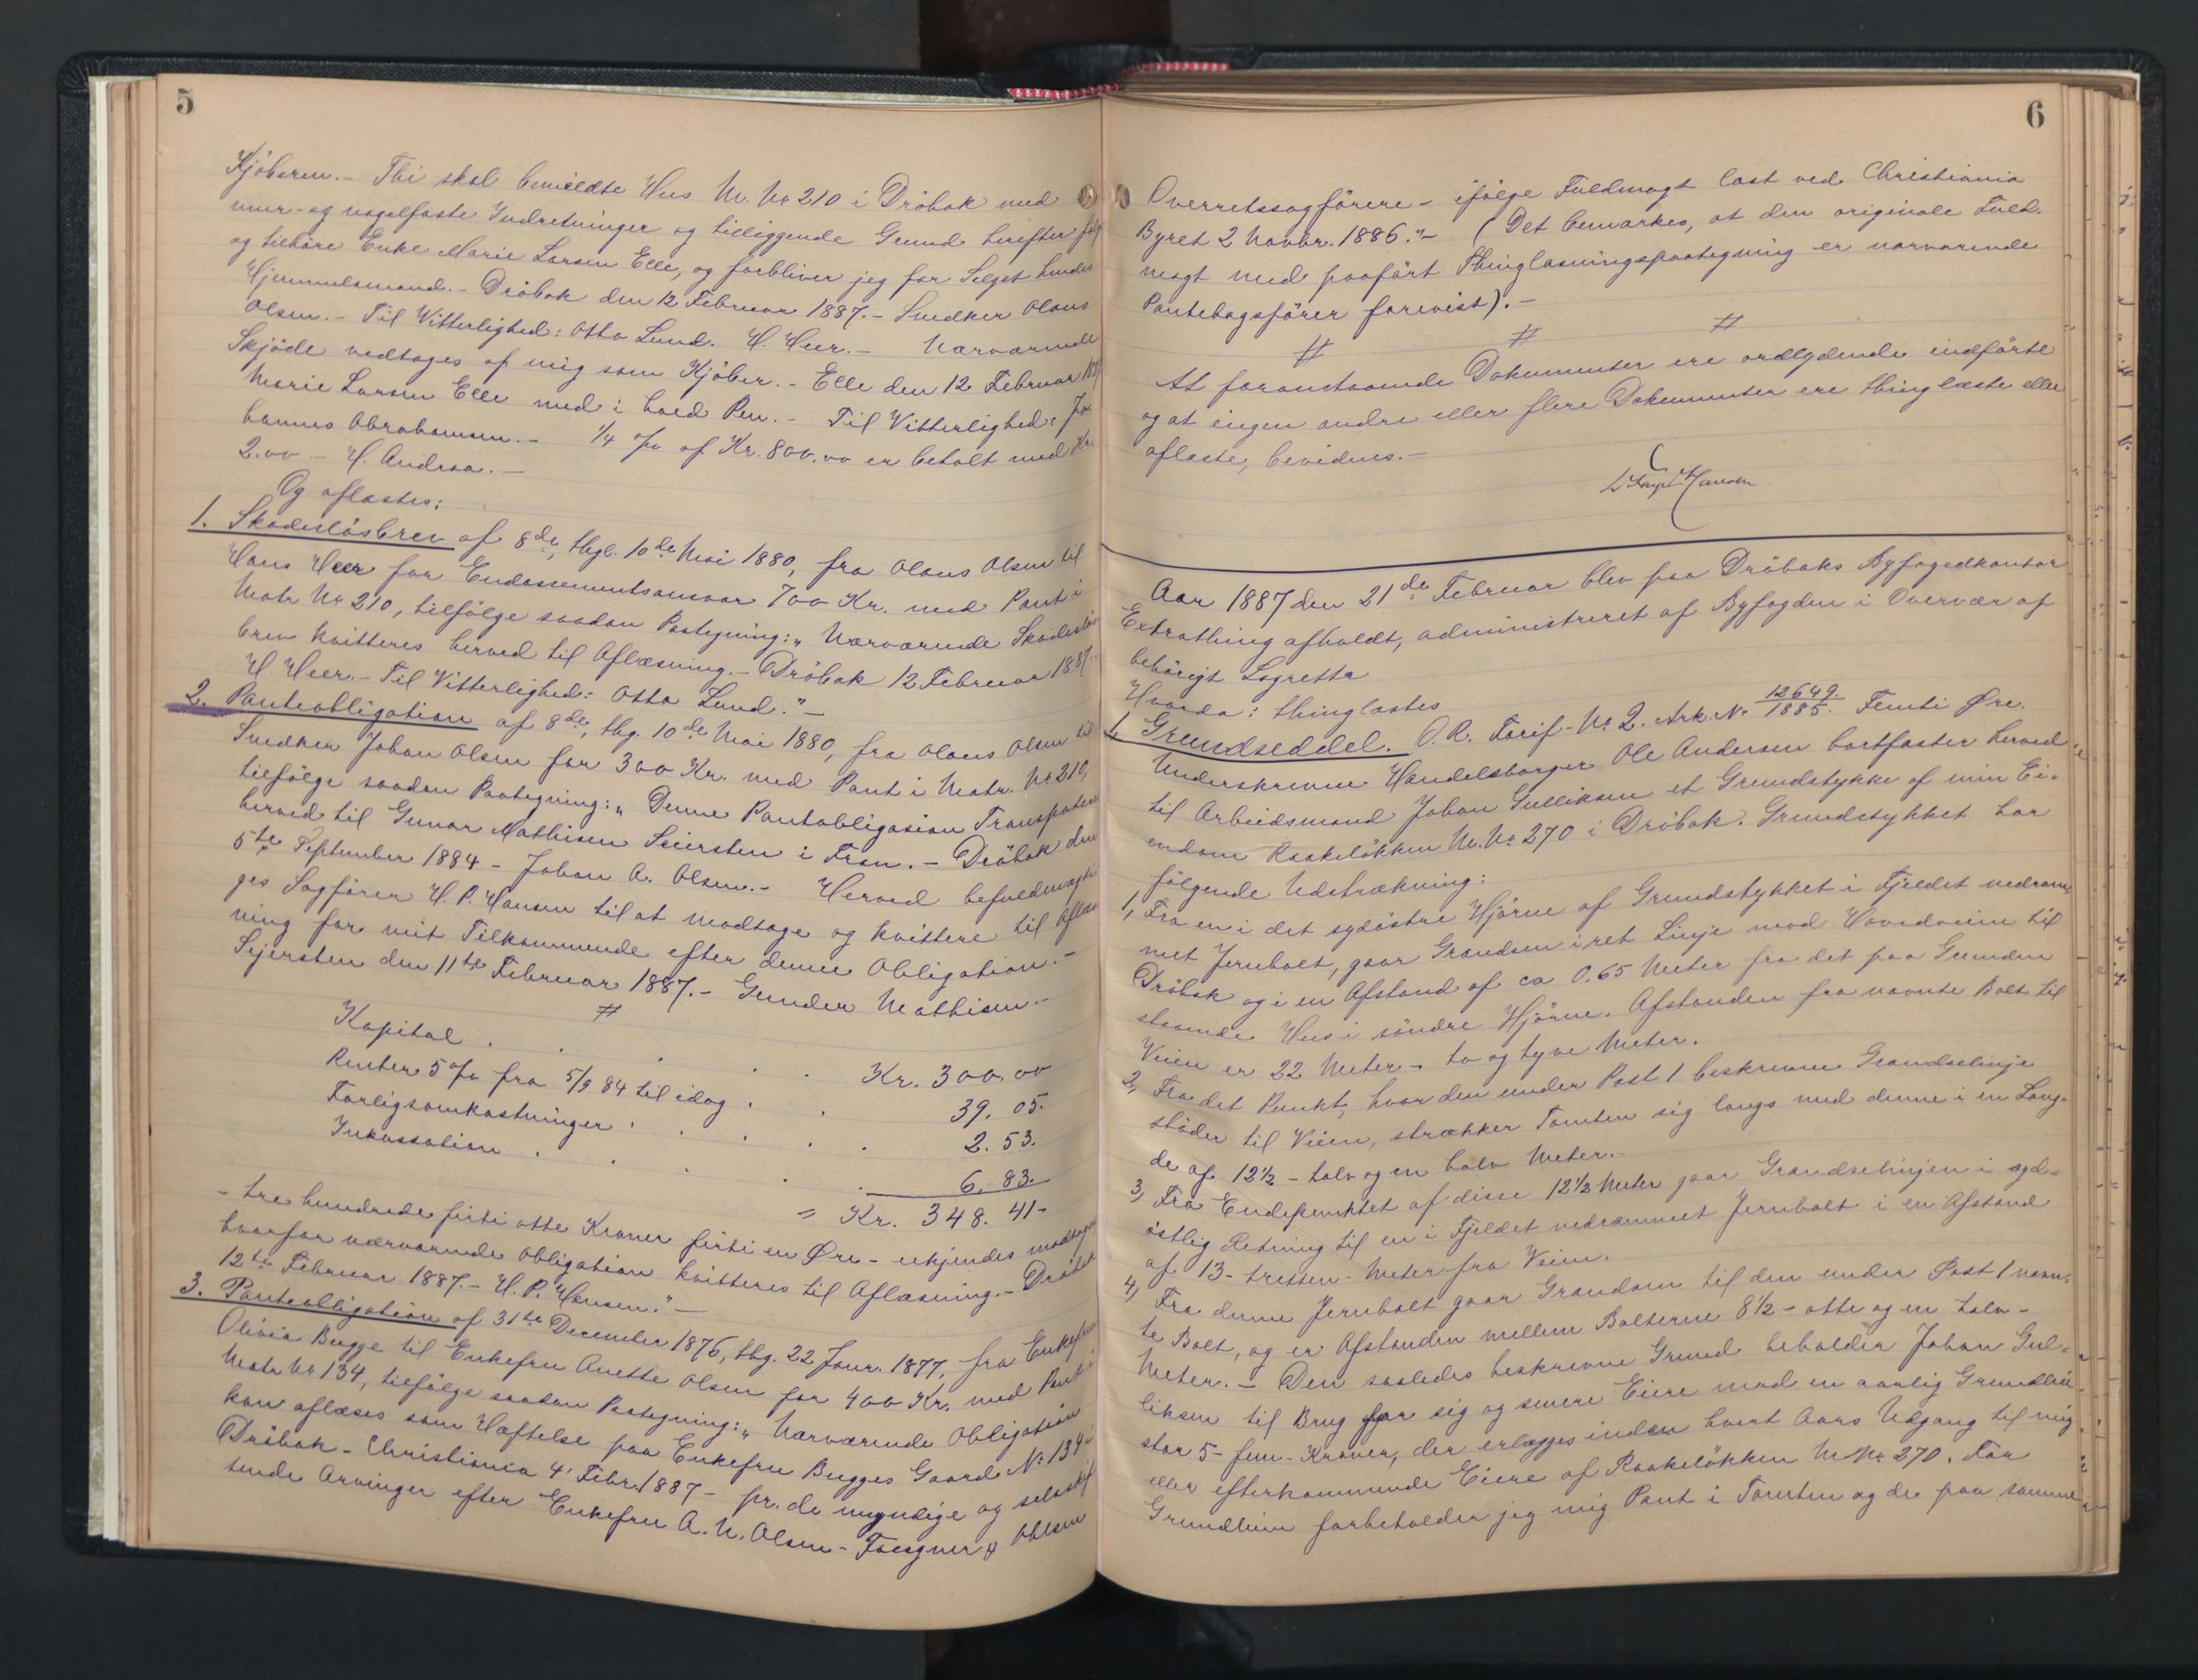 5
Kjöberen. - Thi skal bemeldte Hus M. No 210 i Dröbak med
mur- og nagelfaste Indretninger og tilliggende Grund herefter følg
og tilhöre Enke Marie Larsen Elle, og forbliver jeg for Salget hendes
Hjemmelsmand. - Dröbak den 12 Februar 1887. - Snedker Olaus
Olsen. - Til Vitterlighed: Otto Lund. H. Heer. - Nærværende
Skjöde vedtages af mig som Kjöber. - Elle den 12 Februar 188
Marie Larsen Elle med i hold Pen. - Til Vitterlighed: Jo
hannes Abrahamsen. - 1/4 % af Kr. 800.00 er betalt med Kr.
2.00 - H. Andraa. -
Og aflæstes:
1. Skadeslösbrev af 8de, thgl. 10de Mai 1880, fra Olaus Olsen til
Hans Heer for Endossementsansvar 700 Kr. med Pant i
Matr No 210, tilfölge saadan Paategning: „Nærværende Skadeslös
brev kvitteres herved til Aflæsning. - Dröbak 12 Februar 1887. -
H. Heer. - Til Vitterlighed: Otto Lund." -
2. Panteobligation af 8de, thg. 10de Mai 1880, fra Olaus Olsen til
Snedker Johan Olsen for 300 Kr. med Pant i Matr. No 210,
tilfölge saadan Paategning: „Denne Pantobligasion Transporteres
herved til Gunar Mathisen Seiersten i Fron. - Dröbak den
5te September 1884 - Johan A. Olsen. - Herved befuldmægti
ges Sagförer H. P. Hansen til at modtage og kvittere til Aflæs
ning for mit Tilkommende efter denne Obligation. -
Sejersten den 11te Februar 1887. - Gunder Mathisen. -
#
Kapital . . . . . Kr. 300.00
Renter 5 % fra 5/9 84 til idag . . 39.05.
Forligsomkostninger . . . . . 2.53.
Inkassation . . . . . 6.83.
= Kr. 348.41 -
- tre hundrede firti otte Kroner firti en Øre - erkjendes modtaget
hvorfor nærværende Obligation kvitteres til Aflæsning. - Dröbak
12te Februar 1887. - H. P. Hansen." -
3. Panteobligation af 31te December 1876, thg. 22 Janr. 1877, fra Enkefru
Olivia Bugge til Enkefru Anette Olsen for 400 Kr. med Pant i
Matr No 134, tilfölge saadan Paategning: „Nærværende Obligation
kan aflæses som Hæftelse paa Enkefru Bugges Gaard No 134 i
Dröbak - Christiania 4' Febr. 1887 - pr. de myndige og selvskif
tende Arvinger efter Enkefru A. M. Olsen - Ohlsen
6
Overretssagförere - ifölge Fuldmagt læst ved Christiania
Byret 2 Novbr. 1886." - (Det bemærkes, at den originale Fuld-
magt med paafört Thinglæsningspaategning er nærværende
Pantebogsförer forevist). -
# # #
At foranstaaende Dokumenter ere ordlydende indförte
og at ingen andre eller flere Dokumenter ere thinglæste eller
aflæste, bevidnes. -
Hansen
Aar 1887 den 21de Februar blev paa Dröbaks Byfogedkontor
Extrathing afholdt, administreret af Byfogden i Overvær af
behörigt Lagrette
Hvorda: thinglæstes
1. Grundseddel. O. R. Tarif - No 2. Ark. No 12649./1885. Femti Øre.
Underskrevne Handelsborger Ole Andersen bortfæster herved
til Arbeidsmand Johan Gulliksen et Grundstykke af min Ei-
endom Raakelökken M. No 270 i Dröbak. Grundstykket har
fölgende Udstrækning:
1, Fra en i det sydöstre Hjörne af Grundstykket i Fjeldet nedram-
met Jernbolt, gaar Grændsen i ret Linje mod Hovedveien til
Dröbak og i en Afstand af ca 0.65 Meter fra det paa Grunden
staaende Hus i söndre Hjörne. Afstanden fra nævnte Bolt til
Veien er 22 Meter - to og tyve Meter.
2, Fra det Punkt, hvor den under Post 1 beskrevne Grændselinje
stöder til Veien, strækker Tomten sig langs med denne i en Læng-
de af 12½ - tolv og en halv Meter. -
3, Fra Endepunktet af disse 12½ Meter gaar Grændselinjen i syd-
östlig Retning til en i Fjeldet nedrammet Jernbolt i en Afstand
af 13 - tretten - Meter fra Veien.
4, Fra denne Jernbolt gaar Grændsen til den under Post 1 nævn-
te Bolt, og er Afstanden mellem Bolterne 8½ - otte og en halv -
Meter. - Den saaledes beskrevne Grund beholder Johan Gul-
liksen til Brug for sig og senere Eiere mod en aarlig Grundleie
stor 5 - fem - Kroner, der erlægges inden hvert Aars Udgang til mig
eller efterkommende Eiere af Raakelökken M No 270. For
Grundleien forbeholder jeg mig Pant i Tomten og de paa samme